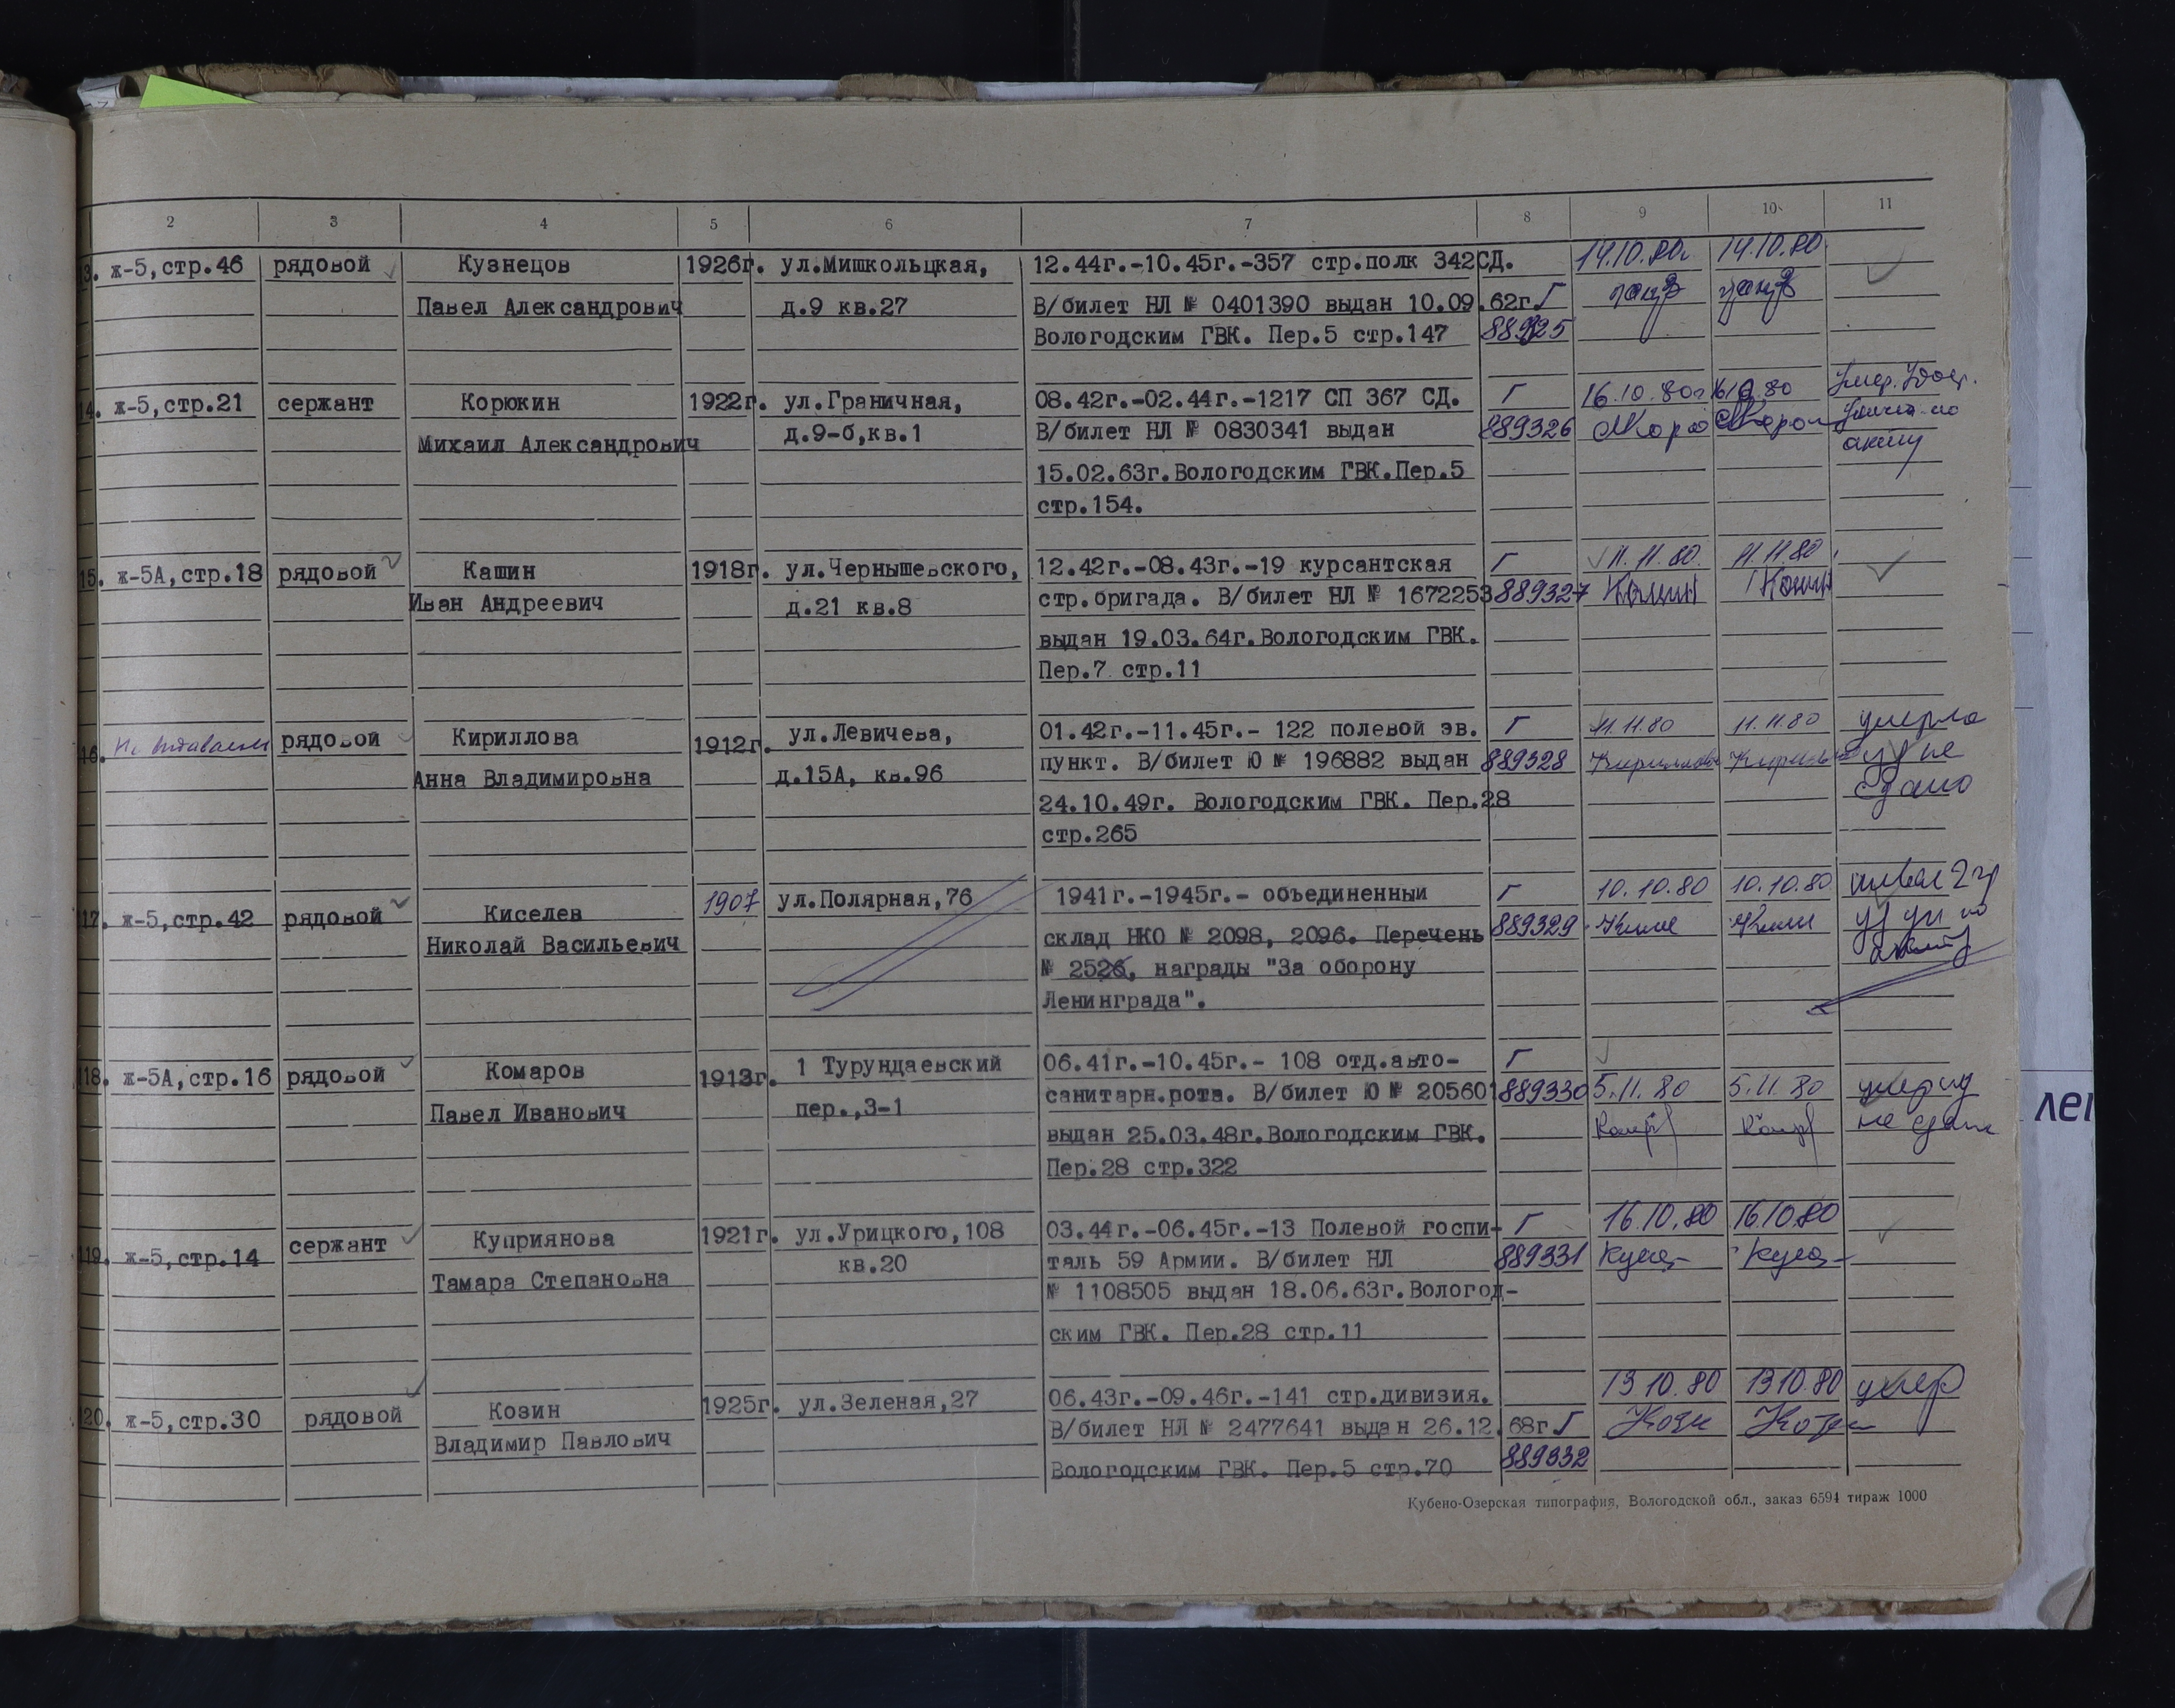 2 3 4 5 6 7 8 9 10 11
3. ж-5,стр.46 рядовой Кузнецов 1926г. ул.Мишкольцкая, 12.44г.-10.45г.-357 стр.полк 342СД. 14.10.80г 14.10.80
Павел Александрович д.9 кв.27 В/билет НЛ № 0401390 выдан 10.09.62г. Г
Вологодским ГВК. Пер.5 стр.147 889325
14. ж-5,стр.21 сержант Корюкин 1922г. ул.Граничная, 08.42г.-02.44г.-1217 СП 367 СД. Г 16.10.80г 16.10.80 Умер. Удост.
Михаил Александрович д.9-б,кв.1 В/билет НЛ № 0830341 выдан 889326 уничт. по
15.02.63г.Вологодским ГВК.Пер.5 акту
стр.154.
15. ж-5А,стр.18 рядовой Кашин 1918г. ул.Чернышевского, 12.42г.-08.43г.-19 курсантская Г 11.11.80. 11.11.80
Иван Андреевич д.21 кв.8 стр.бригада. В/билет НЛ № 1672253 889327 Кашин Кашин
выдан 19.03.64г.Вологодским ГВК.
Пер.7 стр.11
16. Не выдавалось рядовой Кириллова 1912г. ул.Левичева, 01.42г.-11.45г.- 122 полевой эв. Г 11.11.80 11.11.80 умерла
Анна Владимировна д.15А, кв.96 пункт. В/билет Ю № 196882 выдан 889328 Кириллова не
24.10.49г. Вологодским ГВК. Пер.28 сдано
стр.265
117. ж-5,стр.42 рядовой Киселев 1907 ул.Полярная,76 1941г.-1945г.- объединенный Г 10.10.80 10.10.80 инвал 2 гр
Николай Васильевич склад НКО № 2098, 2096. Перечень 889329 по
№ 2526, награды "За оборону акту
Ленинграда".
118. ж-5А,стр.16 рядовой Комаров 1913г. 1 Турундаевский 06.41г.-10.45г.- 108 отд.авто- Г
Павел Иванович пер.,3-1 санитарн.рота. В/билет Ю № 205601 889330 5.11.80 5.11.80 умер уд
выдан 25.03.48г.Вологодским ГВК. не сдано
Пер.28 стр.322
119. ж-5,стр.14 сержант Куприянова 1921г. ул.Урицкого,108 03.44г.-06.45г.-13 Полевой госпи- Г 16.10.80 16.10.80
Тамара Степановна кв.20 таль 59 Армии. В/билет НЛ 889331
№ 1108505 выдан 18.06.63г.Вологод-
ским ГВК. Пер.28 стр.11
120. ж-5,стр.30 рядовой Козин 1925г. ул.Зеленая,27 06.43г.-09.46г.-141 стр.дивизия. 13 10.80 13 10.80 умер
Владимир Павлович В/билет НЛ № 2477641 выдан 26.12.68г Г
Вологодским ГВК. Пер.5 стр.70 889332
Кубено-Озерская типография, Вологодской обл., заказ 6594 тираж 1000